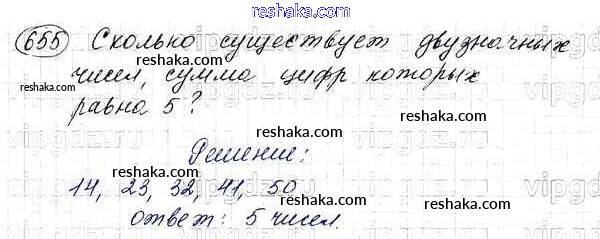 reshaka.com
655 Сколько существует двузначных
reshaka.com
чисел, сумма цифр которых
reshaka.com
равна 5?
reshaka.com
Решение:
reshaka.com reshaka.com
14, 23, 32, 41, 50
ответ: 5 чисел.
reshaka.com
vipgdz.ru